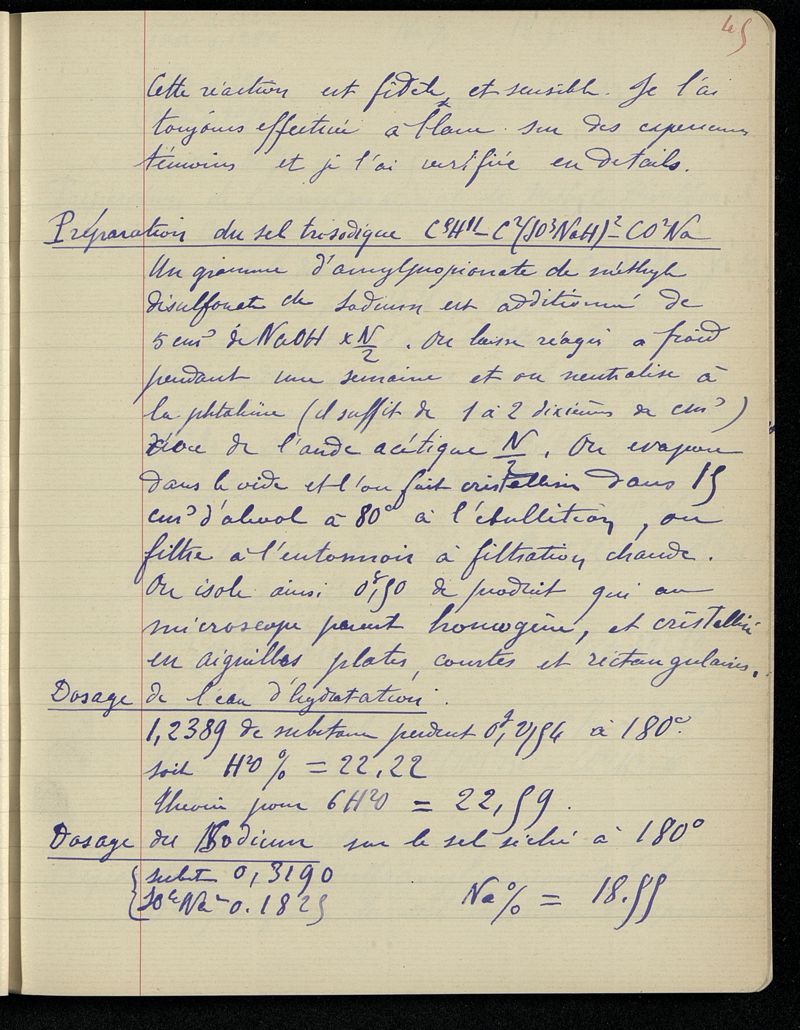 45
Cette réaction est fidèle et sensible. Je l'ai
toujours effectuée à blanc sur des expériences
témoins et je l'ai vérifiée en détails.
Préparation du sel trisodique C⁵H¹¹–C²(SO³NaH)²–CO²Na
Un gramme d'amylpropionate de méthyle
disulfonate de sodium est additionné de
5 cm³ de NaOH × N/2. On laisse réagir à froid
pendant une semaine et on neutralise à
la phtaléine (il suffit de 1 à 2 dixièmes de cm³)
de l'acide acétique N/2. On évapore
dans le vide et l'on fait cristalliser dans 15
cm³ d'alcool à 80° à l'ébullition, on
filtre à l'entonnoir à filtration chaude.
On isole ainsi 0g,50 de produit qui au
microscope parait homogène, et cristallisé
en aiguilles plates, courtes et rectangulaires.
Dosage de l'eau d'hydratation.
1,2389 de substance perdent 0g,2754 à 180°.
soit H²O % = 22.22
Théorie pour 6H²O = 22,59.
Dosage du Sodium sur le sel séché à 180°
subst 0,3190
SO⁴Na² 0.1825 Na % = 18.55